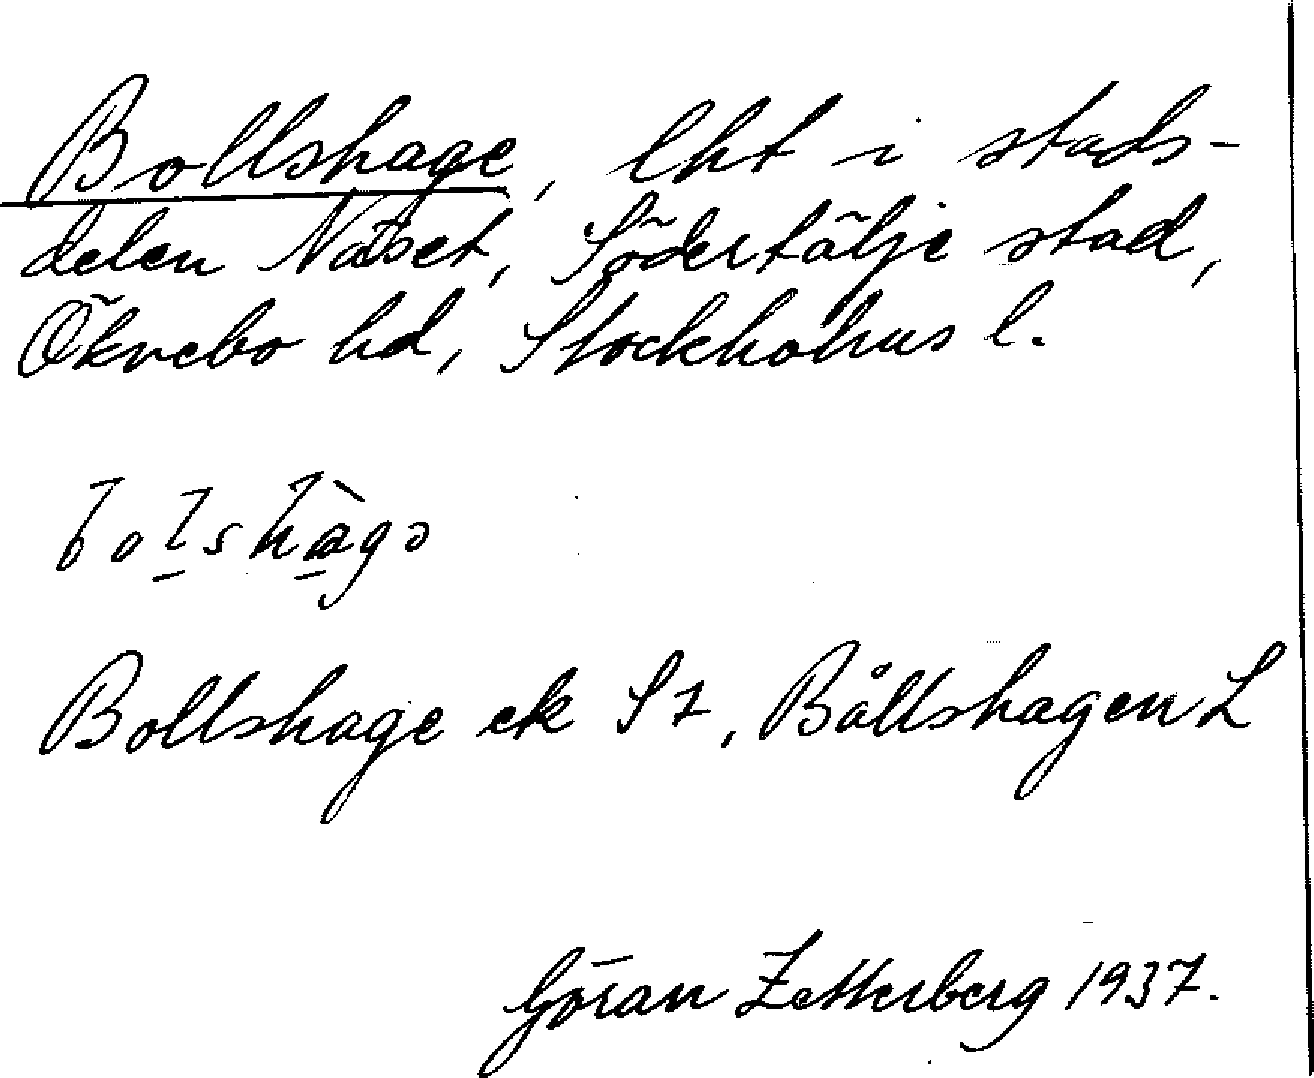 Bollshage, lht i stads-
delen Näset, Södertälje stad,
Öknebo hd, Stockholms l.
Bollshage ek St, Bållshagen L
Göran Zetterberg 1937.